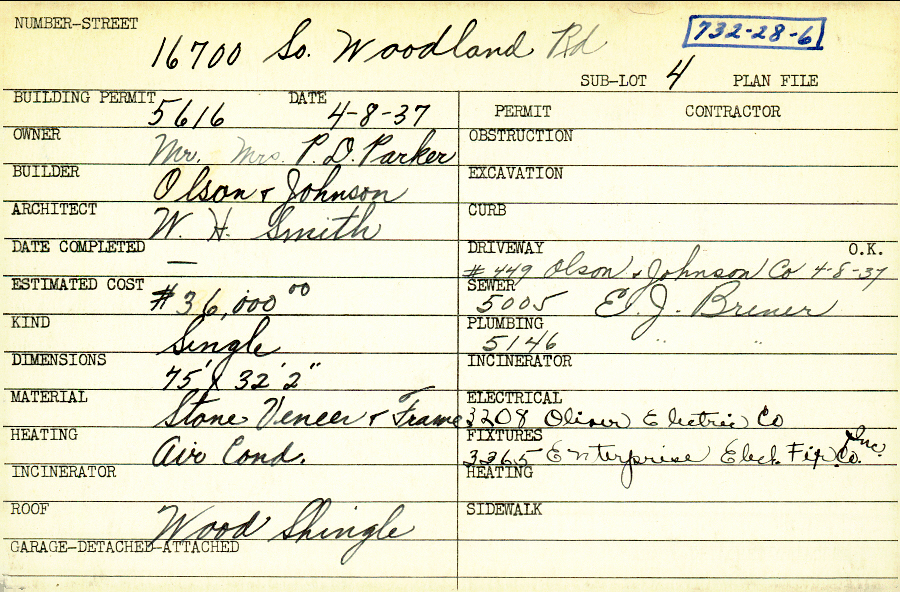 NUMBER-STREET 16700 So. Woodland Rd 732-28-6
SUB-LOT 4 PLAN FILE
BUILDING PERMIT 5616 DATE 4-8-37
OWNER Mr. Mrs. P. D. Parker
BUILDER Olson & Johnson
ARCHITECT W. H. Smith
DATE COMPLETED —
ESTIMATED COST #36,000 00
KIND Single
DIMENSIONS 75' X 32' 2"
MATERIAL Stone Veneer & Frame
HEATING Air Cond.
INCINERATOR
ROOF Wood Shingle
GARAGE-DETACHED-ATTACHED
PERMIT CONTRACTOR
OBSTRUCTION
EXCAVATION
CURB
DRIVEWAY O.K.
#449 Olson & Johnson Co 4-8-37
SEWER 5005 E. J. Brener
PLUMBING 5146 " "
INCINERATOR
ELECTRICAL
3208 Oliver Electric Co
FIXTURES
3265 Enterprise Elect. Fix. Co. Inc.
HEATING
SIDEWALK